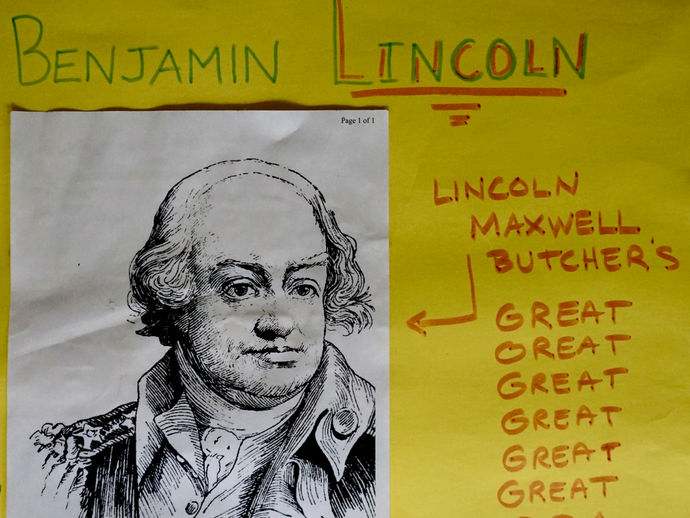 BENJAMIN LINCOLN
Page 1 of 1
LINCOLN
MAXWELL
BUTCHER'S
GREAT
GREAT
GREAT
GREAT
GREAT
GREAT